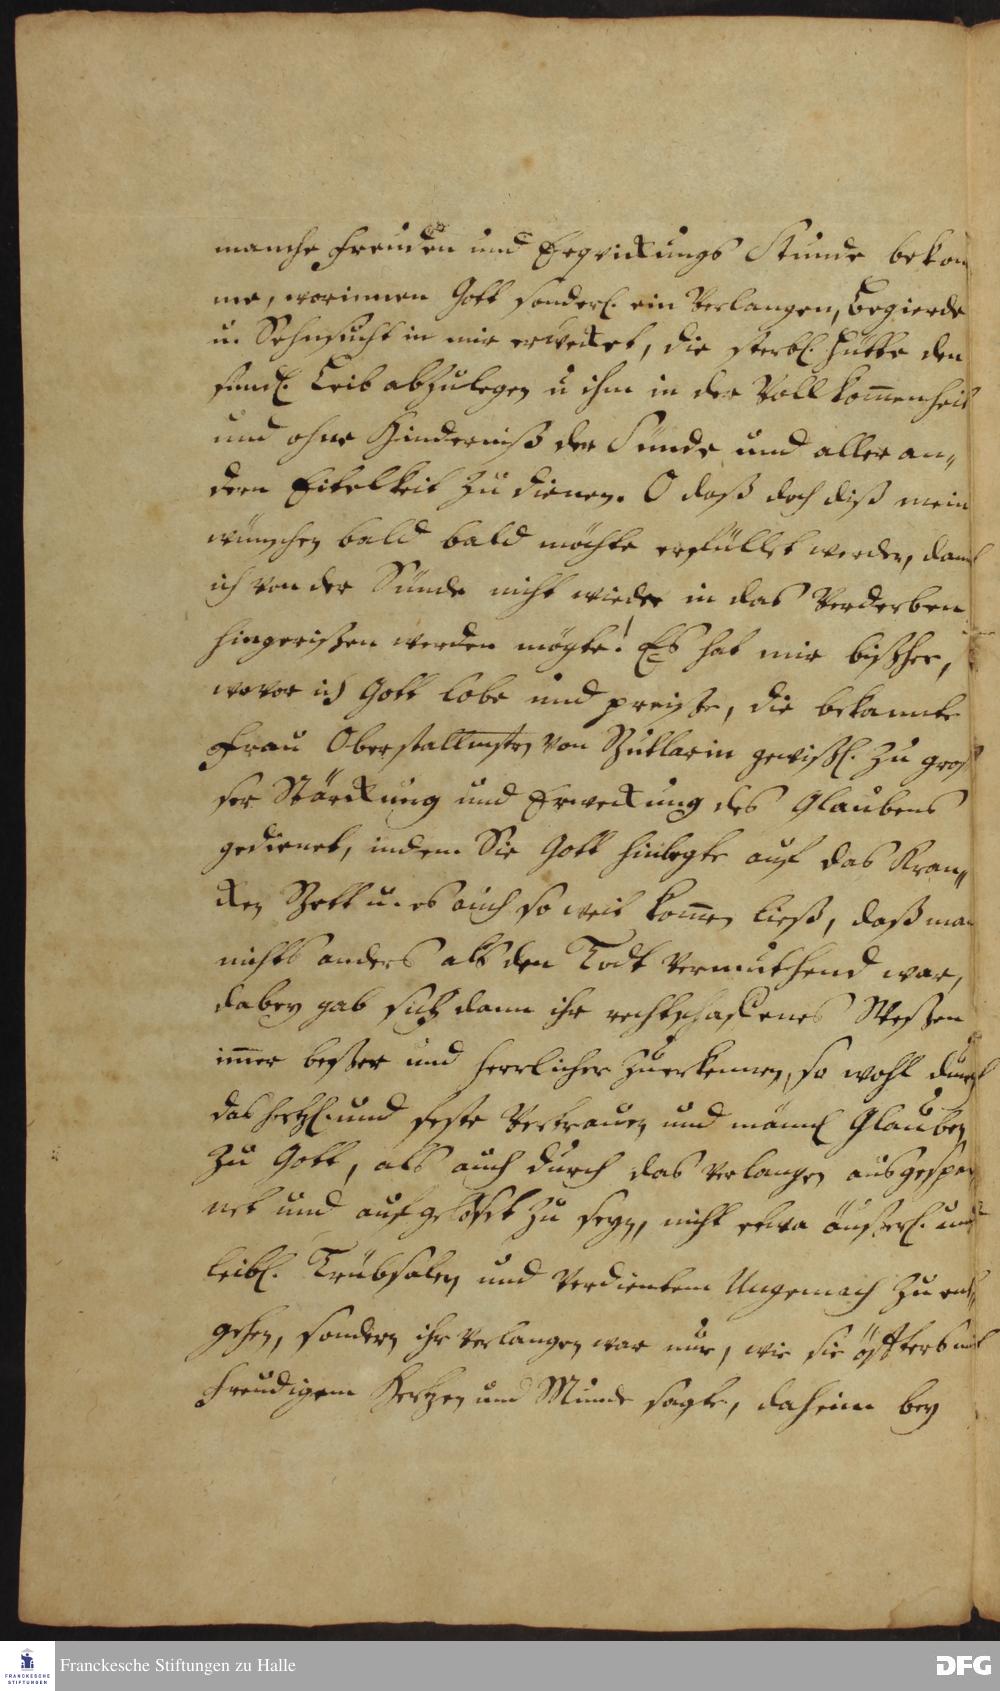 manche Freuden und Erqvickungs Stunde bekom
me, worinnen Gott sonderl. ein Verlangen, Begierde
u. Sehnsucht in mir erwecket, die sterbl. Hütte den
sündl. Leib abzulegen u ihm in der Vollkom̅enheit
und ohne Hinderniß der Sünde und aller an„
dern Eitelkeit zu dienen. O daß doch diß mein
wünschen bald bald möchte erfüllet werden, damit
ich von der Sünde nicht wieder in das Verderben
hingerißen werden mögte! Es hat mir bißher,
wovor ich Gott lobe und preiße, die bekannte
Frau Oberstallmstrn von gewißl. zu gros
ser Stärckung und Erweckung des Glaubens
gedienet, indem Sie Gott hinlegte auf das Kran„
cken Bett u. es auch so weit kom̅en ließ, daß man
nichts anders als den Todt vermuthend war,
dabey gab sich dann ihr rechtschaffenes Weßen
im̅er beßer und herrlicher zuerkennen, so wohl durch
das hertzl. und feste Vertrauen und männl Glauben
zu Gott, als auch durch das verlangen ausgespan
net und aufgelößt zu seyn, nicht etwa äußerl. und
leibl. Trübsalen und verdientem Ungemach zu ent„
gehen, sondern ihr verlangen war nur, wie sie öffters mit
freudigem Hertzen und Munde sagte, daheim bey
Franckesche Stiftungen zu Halle
FRANCKESCHE
STIFTUNGEN
DFG